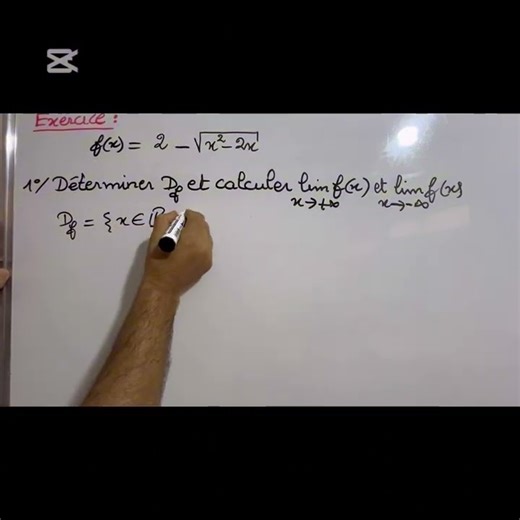 Exercice :
f(x) = 2 - √(x² - 2x)
1°/ Déterminer Df et calculer lim f(x) et lim f(x)
x→+∞ x→-∞
Df = { x ∈ ℝ